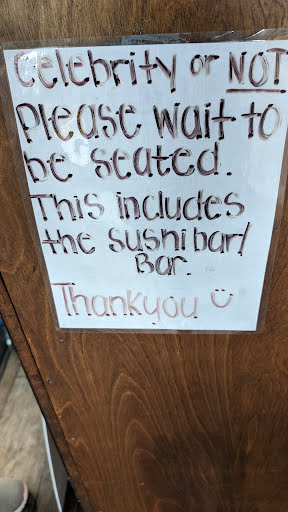 Celebrity or NOT
Please wait to
be seated.
This includes
the sushi bar/
Bar.
Thankyou ☺